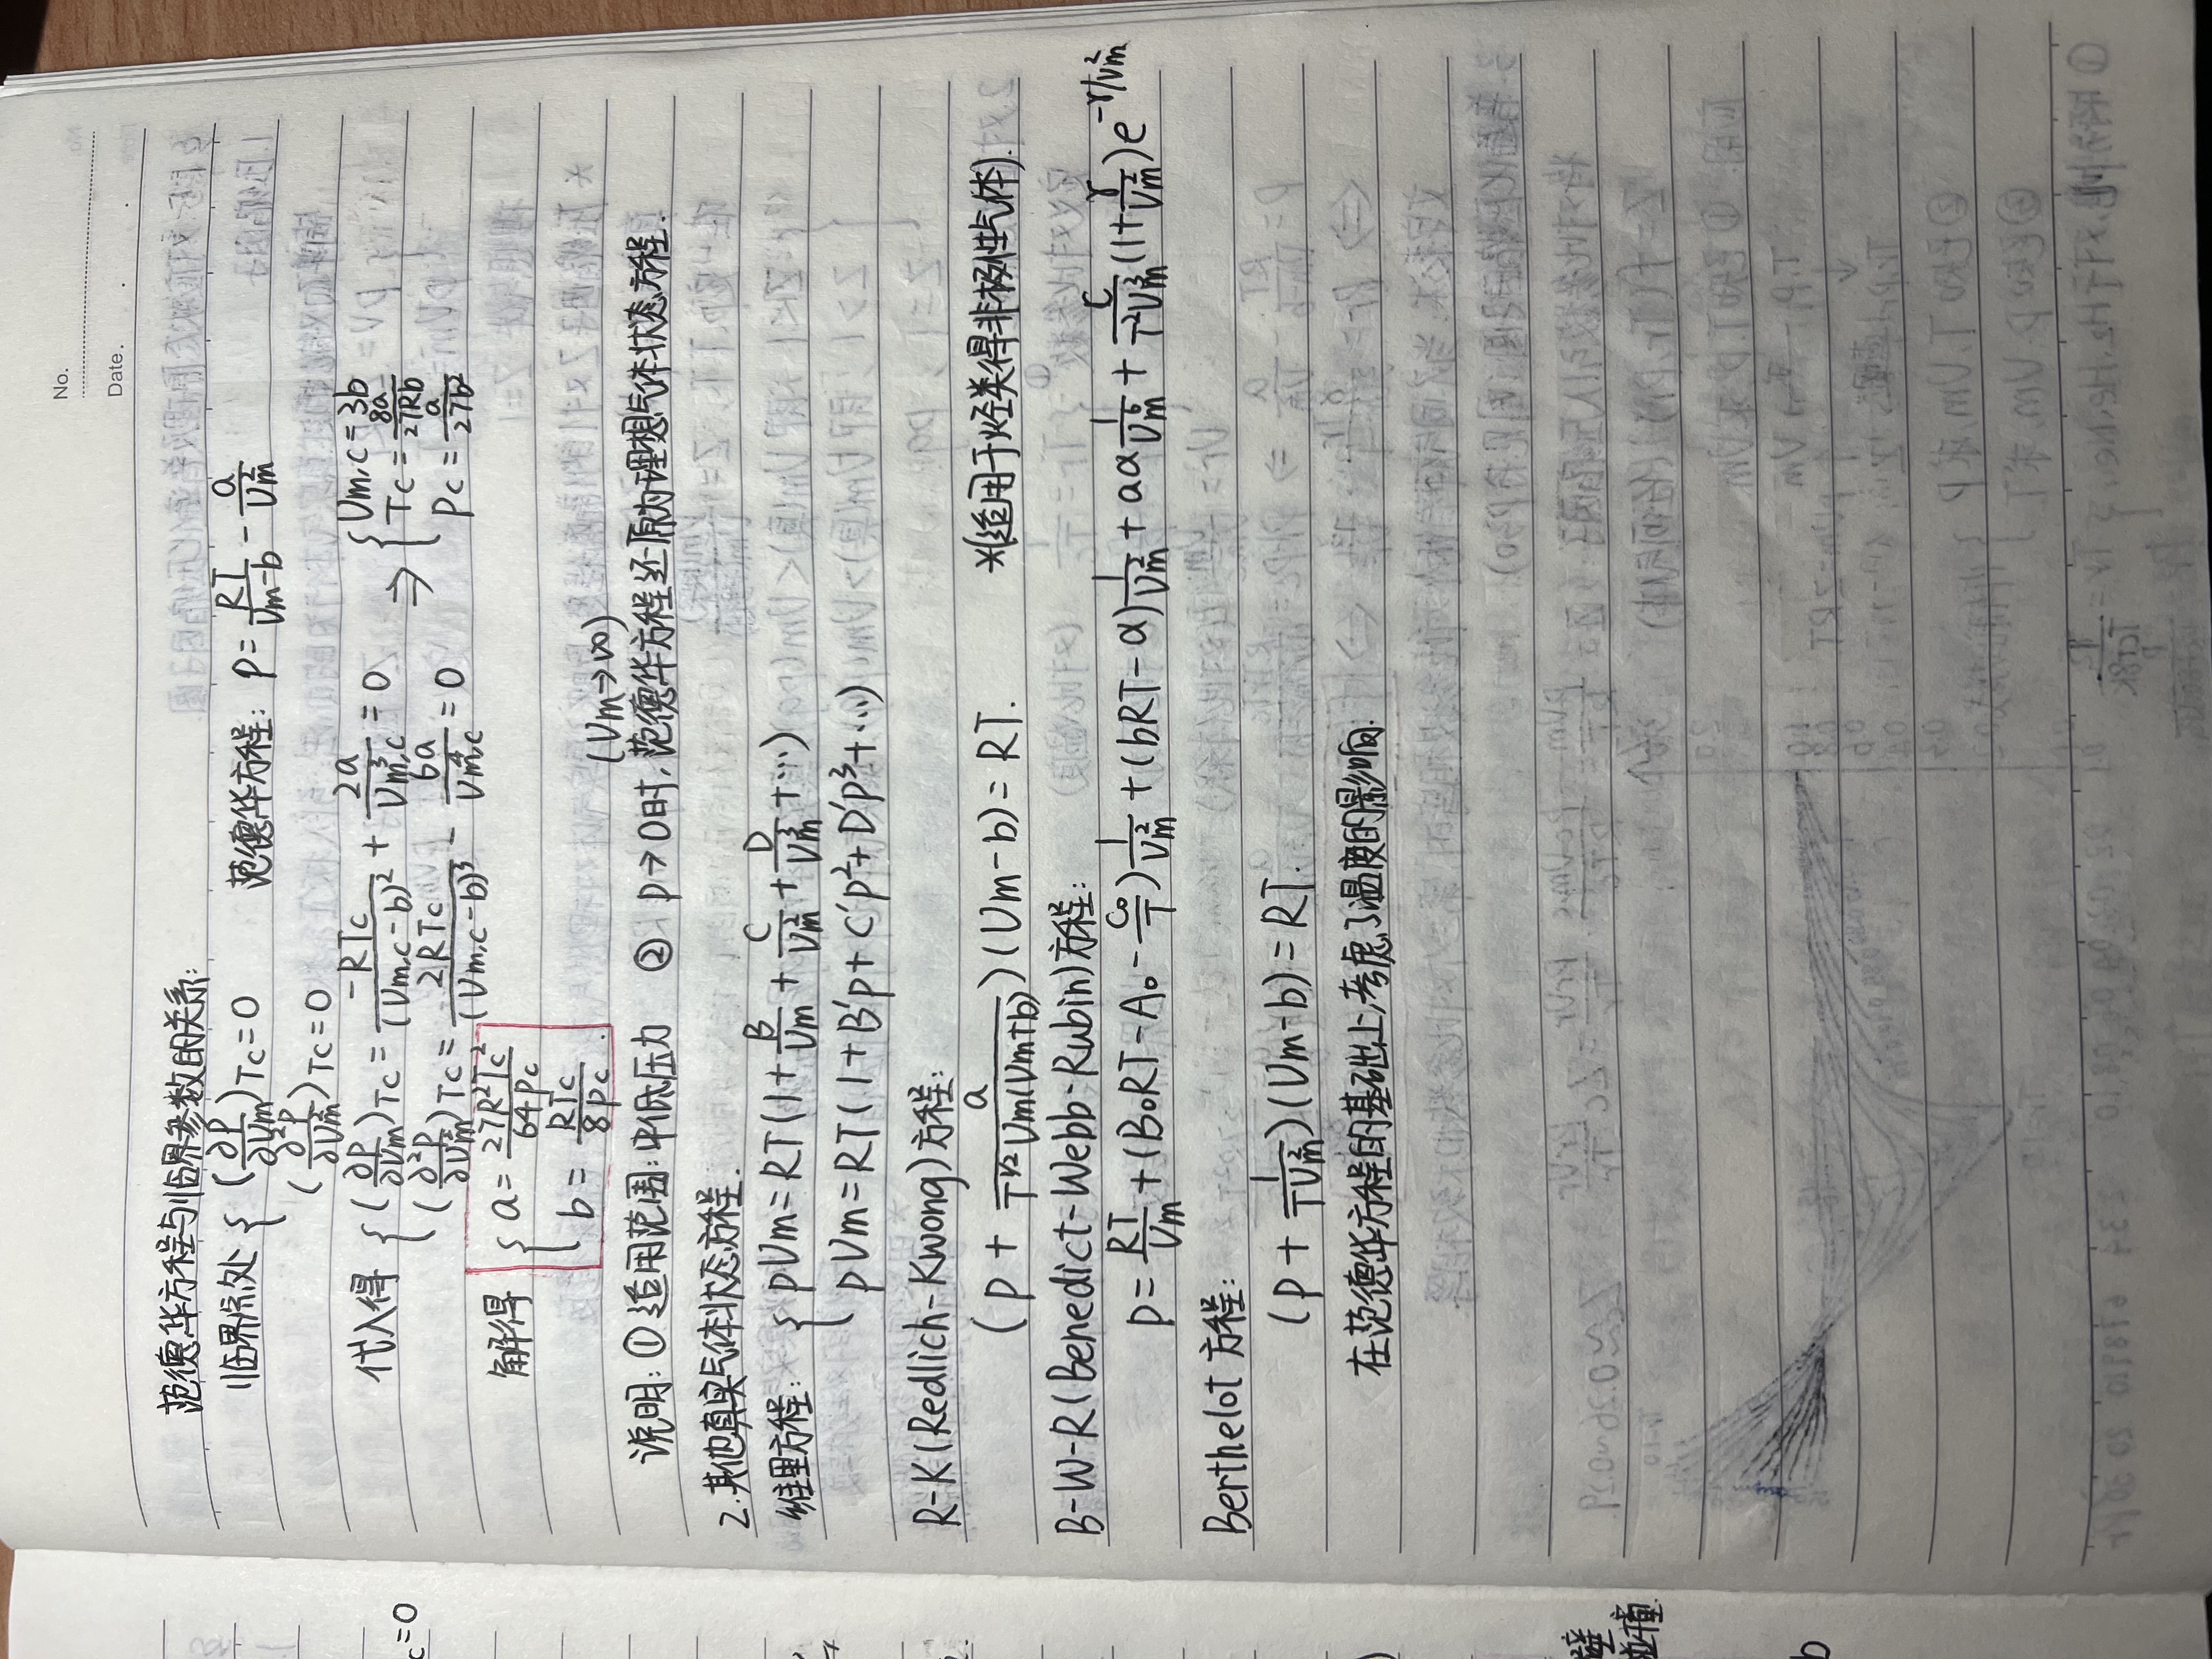 No.
Date.
范德华方程与临界参数的关系:
临界点处 { (∂p/∂Vm)Tc = 0 范德华方程: p = RT/(Vm-b) - a/Vm²
(∂²p/∂Vm²)Tc = 0
代入得 { (∂p/∂Vm)Tc = -RTc/(Vm,c-b)² + 2a/Vm,c³ = 0 ⇒ { Vm,c = 3b
Tc = 8a/27Rb
(∂²p/∂Vm²)Tc = 2RTc/(Vm,c-b)³ - 6a/Vm,c⁴ = 0
Pc = a/27b²
解得 { a = 27R²Tc²/64pc
b = RTc/8pc.
(Vm→∞)
说明: ① 适用范围: 中低压力 ② p→0时, 范德华方程还原为理想气体状态方程.
2.其他真实气体状态方程.
维里方程: { pVm = RT(1 + B/Vm + C/Vm² + D/Vm³ + …)
pVm = RT(1 + B'p + C'p² + D'p³ + …)
R-K(Redlich-Kwong)方程:
(p + a/(T^1/2 Vm(Vm+b)))(Vm-b) = RT. *(适用于烃类得非极性气体).
B-W-R(Benedict-Webb-Rubin)方程:
p = RT/Vm + (B₀RT - A₀ - C₀/T) 1/Vm² + (bRT - α) 1/Vm² + aα 1/Vm⁶ + C/(T²Vm³) (1 + γ/Vm²) e^(-γ/Vm²)
Berthelot 方程:
(p + 1/(TVm²))(Vm-b) = RT.
在范德华方程的基础上,考虑了温度的影响.
c=0
壁
碰撞.
b